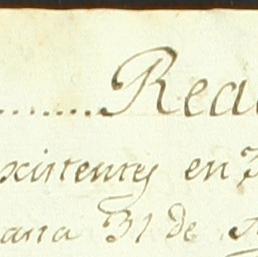 ........Rea
xistentes en 3
ana 31 de